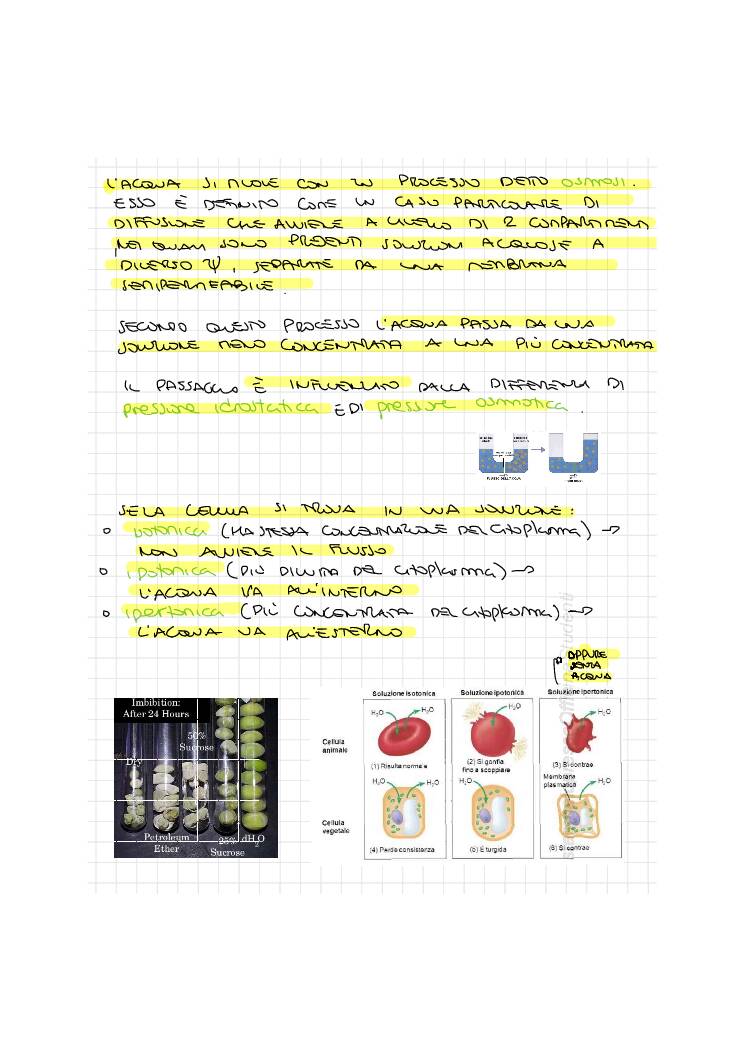 L'ACQUA SI MUOVE CON UN PROCESSO DETTO OSMOSI.
ESSO È DEFINITO COME UN CASO PARTICOLARE DI
DIFFUSIONE CHE AVVIENE A LIVELLO DI 2 COMPARTIMENTI
NEI QUALI SONO PRESENTI SOLUZIONI ACQUOSE A
DIVERSO Ψ, SEPARATE DA UNA MEMBRANA
SEMIPERMEABILE.
SECONDO QUESTO PROCESSO L'ACQUA PASSA DA UNA
SOLUZIONE MENO CONCENTRATA A UNA PIÙ CONCENTRATA
IL PASSAGGIO È INFLUENZATO DALLA DIFFERENZA DI
pressione idrostatica E DI pressione osmotica.
SE LA CELLULA SI TROVA IN UNA SOLUZIONE:
o isotonica (HA STESSA CONCENTRAZIONE DEL citoplasma) →
NON AVVIENE IL FLUSSO
o ipotonica (PIÙ DILUITA DEL citoplasma) →
L'ACQUA VA ALL'INTERNO
o ipertonica (PIÙ CONCENTRATA DEL citoplasma) →
L'ACQUA VA ALL'ESTERNO
OPPURE
SENZA
ACQUA
Imbibition:
After 24 Hours
50%
Sucrose
Dry
Petroleum
Ether
25%
Sucrose
dH2O
Soluzione isotonica
Soluzione ipotonica
Soluzione ipertonica
H2O
H2O
H2O
H2O
Cellula
animale
(1) Risulta normale
(2) Si gonfia
fino a scoppiare
(3) Si contrae
H2O
H2O
H2O
Membrana
plasmatica
H2O
Cellula
vegetale
(4) Perde consistenza
(5) È turgida
(6) Si contrae